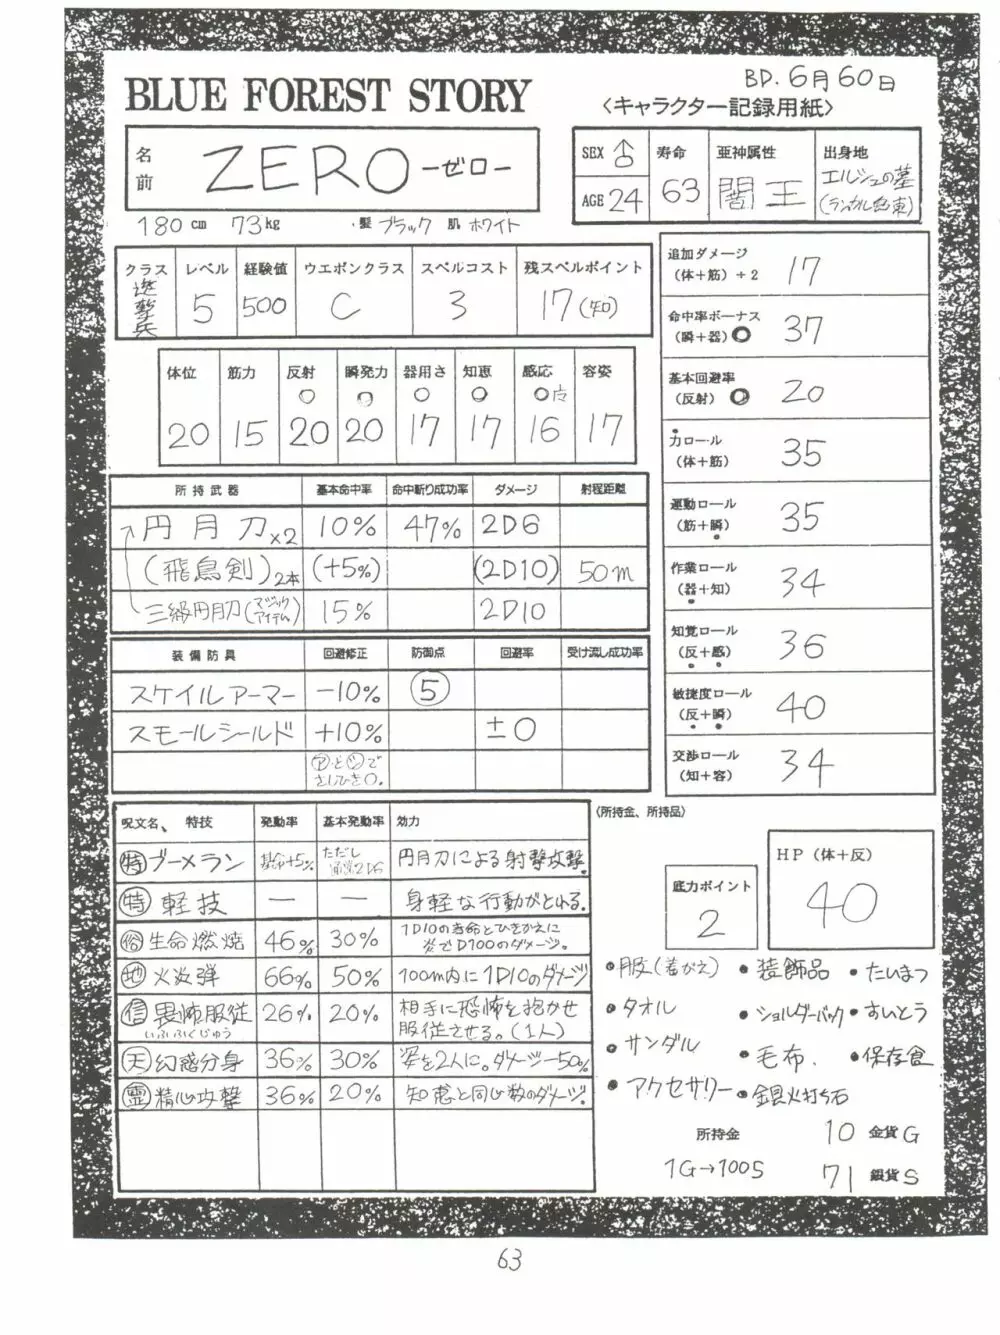 BD. 6月60日
BLUE FOREST STORY
〈キャラクター記録用紙〉
名前 ZERO -ゼロ-
SEX ♂ 寿命 63 亜神属性 闇王 出身地 エルシェの墓
AGE 24
180cm 73kg ・髪 ブラック 肌 ホワイト
クラス レベル 経験値 ウエポンクラス スペルコスト 残スペルポイント
遊撃兵 5 500 C 3 17(知)
体位 筋力 反射 瞬発力 器用さ 知恵 感応 容姿
20 15 20 20 17 17 16 17
追加ダメージ
(体+筋)÷2 17
命中率ボーナス
(瞬+器) 37
基本回避率
(反射) 20
力ロール
(体+筋) 35
運動ロール
(筋+瞬) 35
作業ロール
(器+知) 34
知覚ロール
(反+感) 36
敏捷度ロール
(反+瞬) 40
交渉ロール
(知+容) 34
所持武器 基本命中率 命中斬り成功率 ダメージ 射程距離
円月刀×2 10% 47% 2D6
(飛鳥剣)2本 (+5%) (2D10) 50m
三級円月刀(マジックアイテム) 15% 2D10
装備防具 回避修正 防御点 回避率 受け流し成功率
スケイルアーマー -10% ⑤
スモールシールド +10% ±0
㋐と㋛で
さしひき0.
呪文名、特技 発動率 基本発動率 効力
㊕ブーメラン 基命+5% ただし通常2D6 円月刀による射撃攻撃.
㊕軽技 ― ― 身軽な行動がとれる.
俗 生命燃焼 46% 30% 1D10の寿命とひきかえに
炎でD100のダメージ。
地 火炎弾 66% 50% 100m内に1D10のダメージ
信 畏怖服従 26% 20% 相手に恐怖を抱かせ
いふふくじゅう 服従させる。(1人)
天 幻惑分身 36% 30% 姿を2人に。ダメージ-50%
霊 精心攻撃 36% 20% 知恵と同じ数のダメージ.
(所持金、所持品)
底力ポイント 2
HP(体+反) 40
・服(着がえ) ・装飾品 ・たいまつ
・タオル ・ショルダーバック ・すいとう
・サンダル ・毛布. ・保存食
・アクセサリー ・銀火打ち石
所持金 10 金貨G
1G→100S 71 銀貨S
63